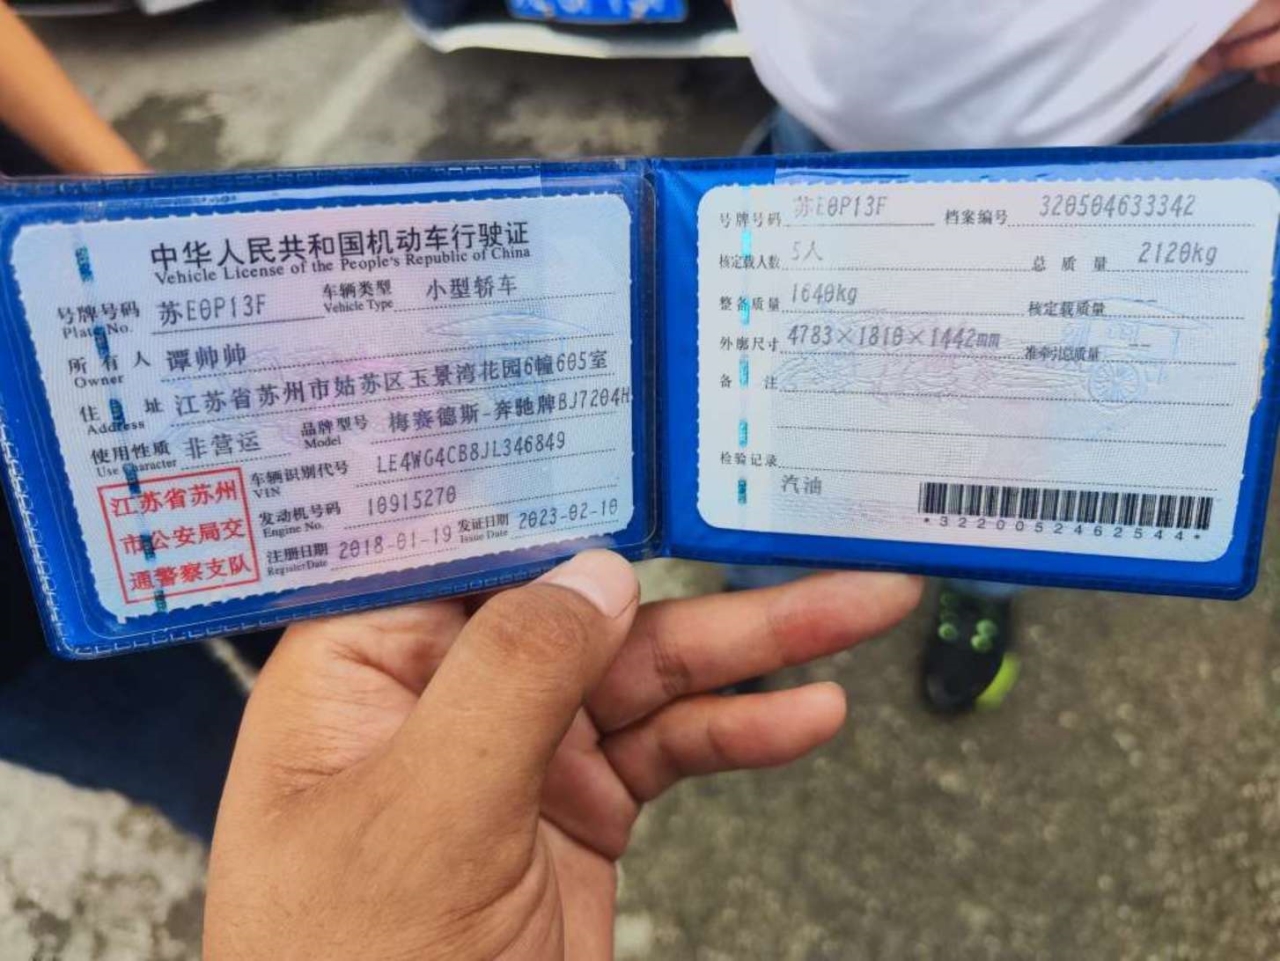 中华人民共和国机动车行驶证
Vehicle License of the People's Republic of China
号牌号码 苏E0P13F 车辆类型 小型轿车
Plate No. Vehicle Type
所有人 谭帅帅
Owner
住址 江苏省苏州市姑苏区玉景湾花园6幢605室
Address
使用性质 非营运 品牌型号 梅赛德斯-奔驰牌BJ7204H
Use Character Model
车辆识别代号 LE4WG4CB8JL346849
VIN
发动机号码 10915270
Engine No.
注册日期 2018-01-19 发证日期 2023-02-10
Register Date Issue Date
江苏省苏州
市公安局交
通警察支队
号牌号码 苏E0P13F 档案编号 320504633342
核定载人数 5人 总质量 2120kg
整备质量 1640kg 核定载质量 --
外廓尺寸 4783×1810×1442mm 准牵引总质量 --
备注
检验记录
汽油
*3220052462544*